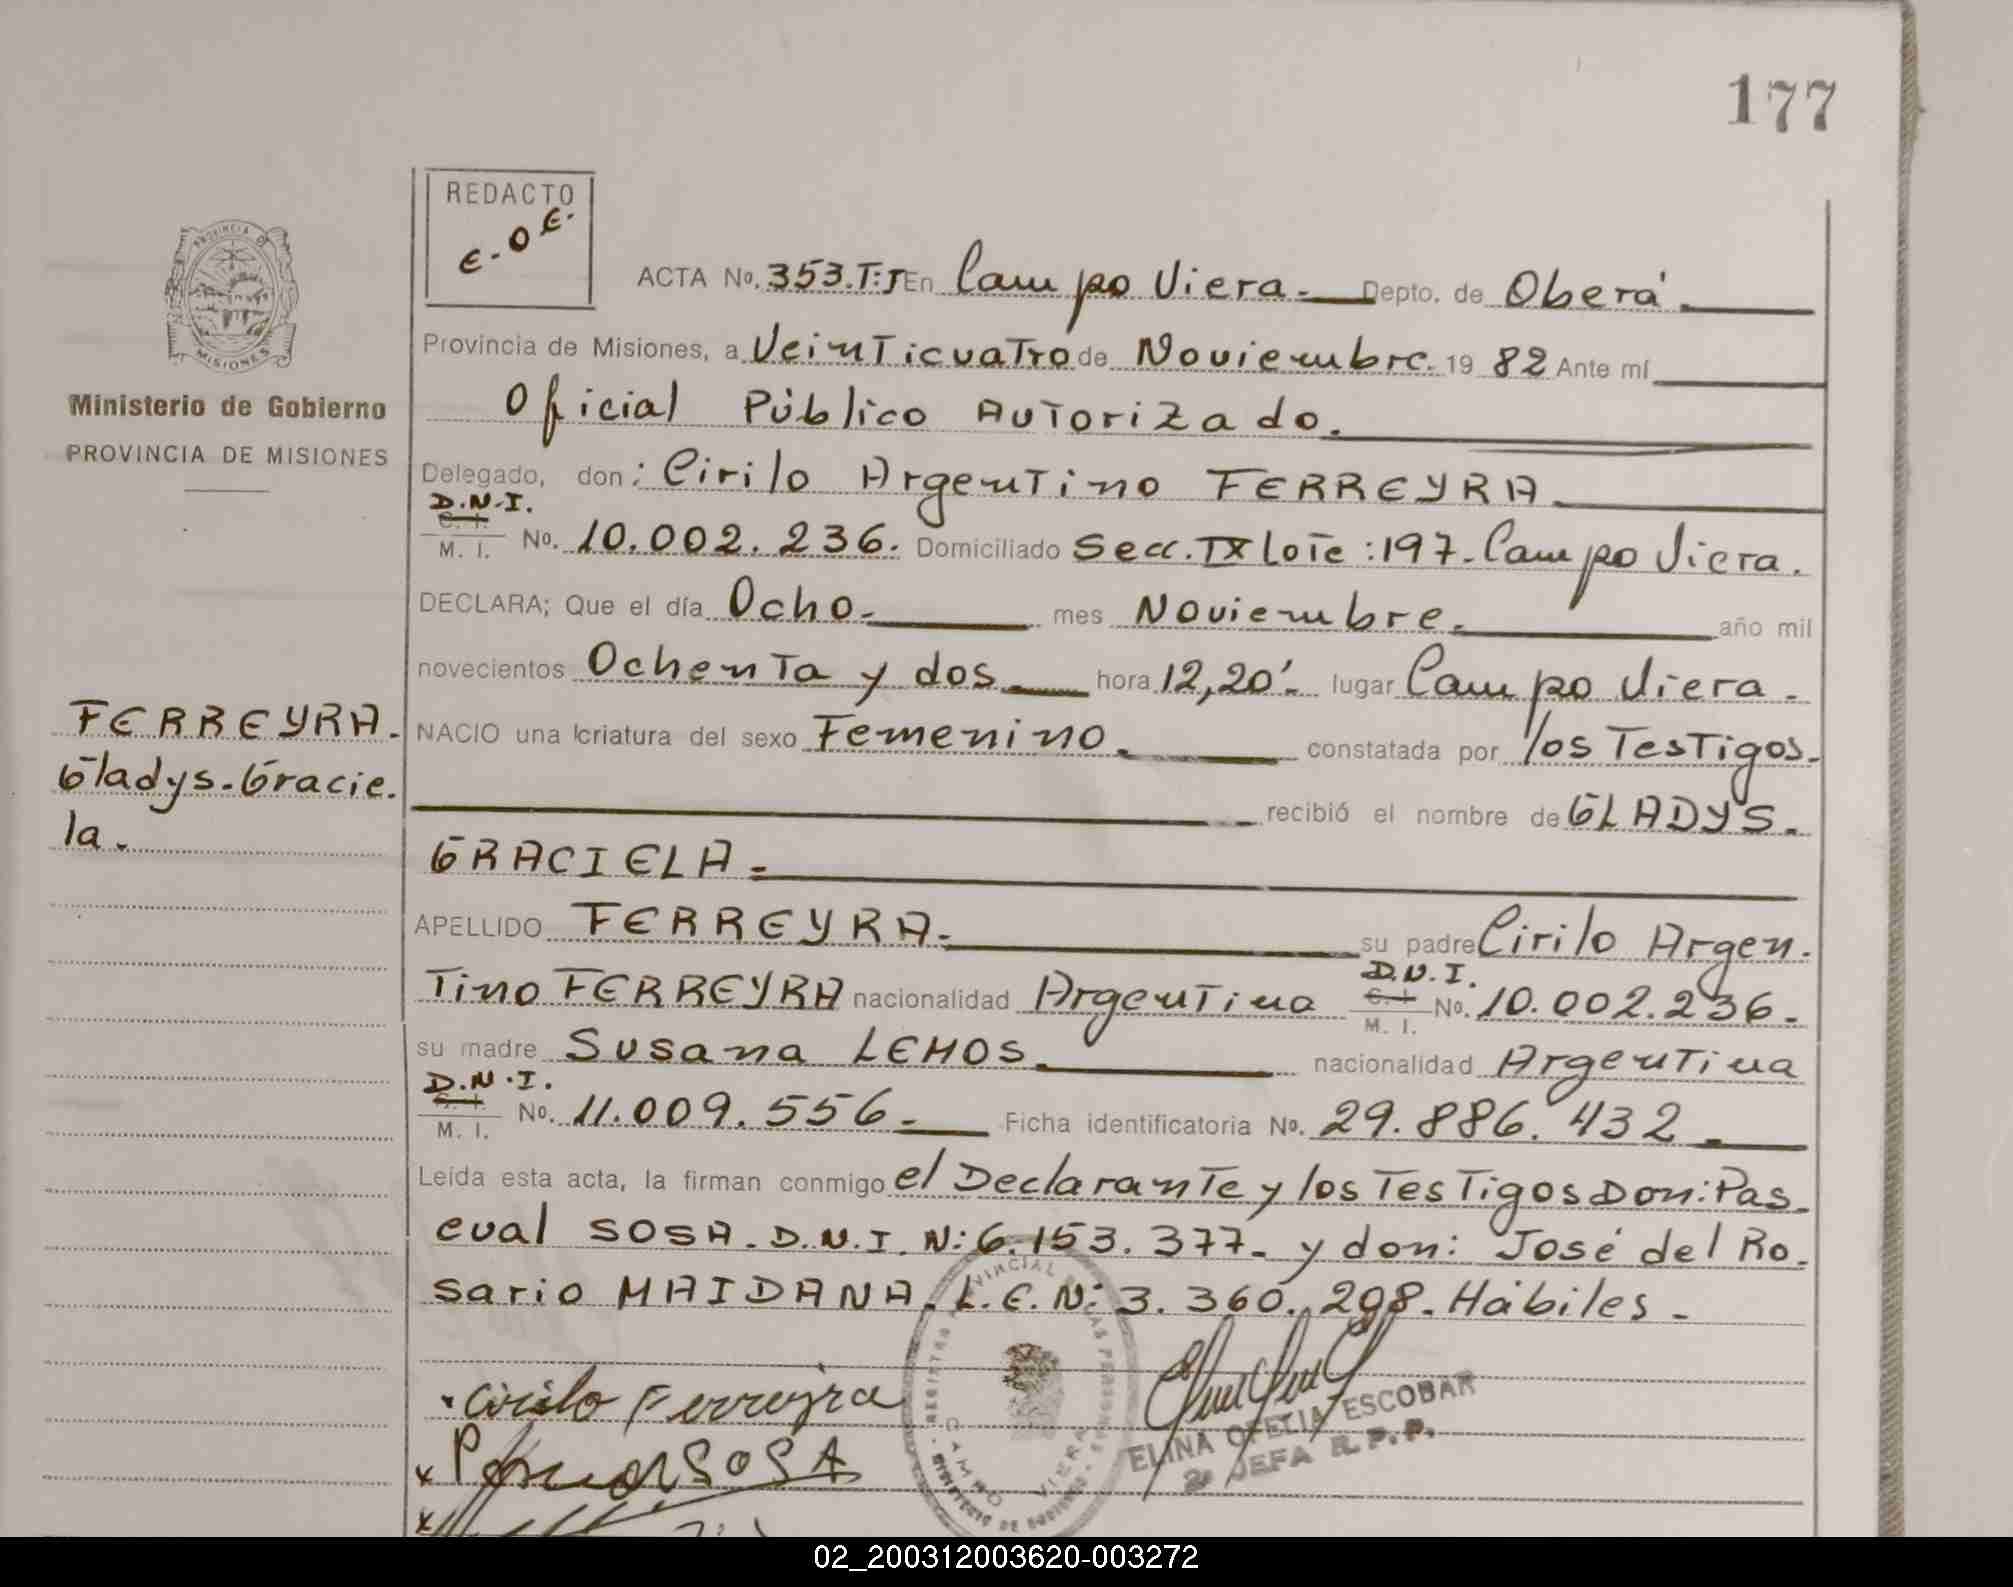 177
REDACTO
E.O.E.
PROVINCIA DE
MISIONES
Ministerio de Gobierno
PROVINCIA DE MISIONES
FERREYRA.
Gladys.Gracie.
la.
ACTA No. 353.T:I En Campo Viera. Depto. de Oberá.
Provincia de Misiones, a Veinticuatro de Noviembre. 19 82 Ante mí
Oficial Público Autorizado.
Delegado, don: Cirilo Argentino FERREYRA
D.N.I.
C. I.
M. I. No. 10.002.236. Domiciliado Secc. IX Lote:197. Campo Viera.
DECLARA; Que el día Ocho. mes Noviembre. año mil
novecientos Ochenta y dos hora 12,20'. lugar Campo Viera.
NACIO una criatura del sexo Femenino. constatada por los Testigos.
recibió el nombre de GLADYS.
GRACIELA.
APELLIDO FERREYRA. su padre Cirilo Argen.
D.N.I.
tino FERREYRA nacionalidad Argentina C. I. M. I. No. 10.002.236.
su madre Susana LEMOS nacionalidad Argentina
D.N.I.
C. I.
M. I. No. 11.009.556. Ficha identificatoria No. 29.886.432
Leída esta acta, la firman conmigo el Declarante y los Testigos Don: Pas
cual SOSA. D.N.I. N: 6.153.377. y don: José del Ro.
sario MAIDANA. L.E. N: 3.360.298. Hábiles.
Cirilo Ferreyra
x Pascual SOSA
x
REGISTRO PROVINCIAL DE LAS PERSONAS
MINISTERIO DE GOBIERNO
CAMPO VIERA
ELINA OFELIA ESCOBAR
2a JEFA R.P.P.
02_200312003620-003272